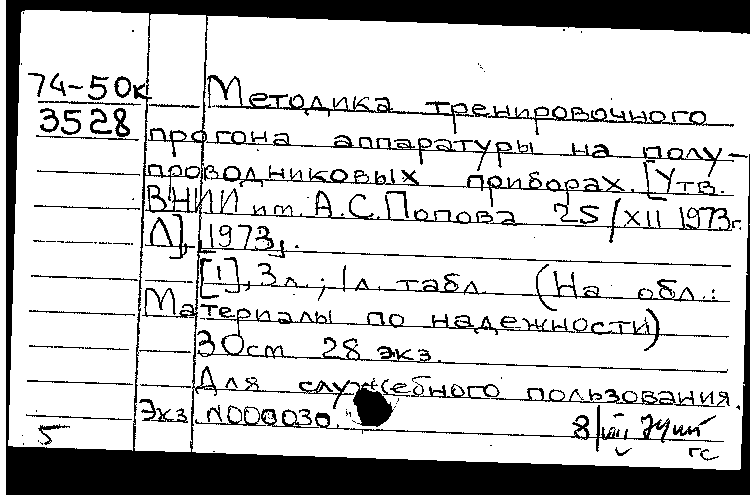 74-50к Методика тренировочного
3528 прогона аппаратуры на полу-
проводниковых приборах. [Утв.
ВНИИ им. А.С. Попова 25/XII 1973г.
Л], 1973,.
[1], 3л.; 1л. табл. (На обл.:
Материалы по надежности)
30см 28 экз.
Для служебного пользования.
Экз. N000030. 8/VIII
5 гс